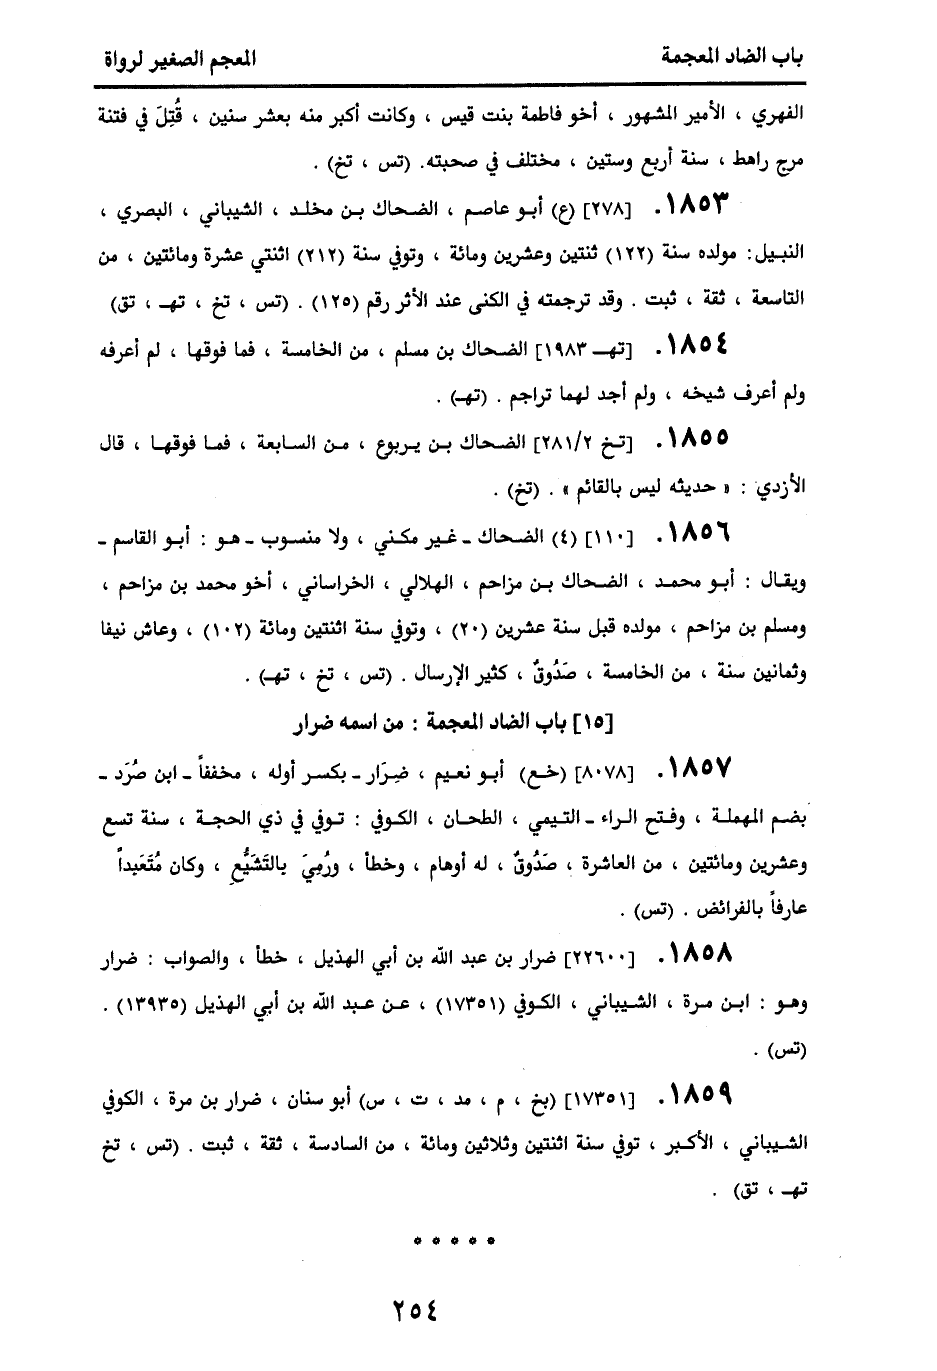 باب الضاد المعجمة
المعجم الصغير لرواة
الفهري ، الأمير المشهور ، أخو فاطمة بنت قيس ، وكانت أكبر منه بعشر سنين ، قُتِلَ في فتنة
مرج راهط ، سنة أربع وستين ، مختلف في صحبته. (تس ، تخ) .
١٨٥٣. [٢٧٨] (ع) أبو عاصم ، الضحاك بن مخلد ، الشيباني ، البصري ،
النبيل: مولده سنة (١٢٢) ثنتين وعشرين ومائة ، وتوفي سنة (٢١٢) اثنتي عشرة ومائتين ، من
التاسعة ، ثقة ، ثبت . وقد ترجمته في الكنى عند الأثر رقم (١٢٥) . (تس ، تخ ، تهـ ، تق)
١٨٥٤. [تهـ ١٩٨٣] الضحاك بن مسلم ، من الخامسة ، فما فوقها ، لم أعرفه
ولم أعرف شيخه ، ولم أجد لهما تراجم . (تهـ) .
١٨٥٥. [تخ ٢٨١/٢] الضحاك بن يربوع ، من السابعة ، فما فوقها ، قال
الأزدي : « حديثه ليس بالقائم » . (تخ) .
١٨٥٦. [١١٠] (٤) الضحاك ـ غير مكني ، ولا منسوب ـ هو : أبو القاسم ـ
ويقال : أبو محمد ، الضحاك بن مزاحم ، الهلالي ، الخراساني ، أخو محمد بن مزاحم ،
ومسلم بن مزاحم ، مولده قبل سنة عشرين (٢٠) ، وتوفي سنة اثنتين ومائة (١٠٢) ، وعاش نيفا
وثمانين سنة ، من الخامسة ، صَدُوقٌ ، كثير الإرسال . (تس ، تخ ، تهـ) .
[١٥] باب الضاد المعجمة : من اسمه ضرار
١٨٥٧. [٨٠٧٨] (خع) أبو نعيم ، ضِرَار ـ بكسر أوله ، مخففاً ـ ابن صُرَد ـ
بضم المهملة ، وفتح الراء ـ التيمي ، الطحان ، الكوفي : توفي في ذي الحجة ، سنة تسع
وعشرين ومائتين ، من العاشرة ، صَدُوقٌ ، له أوهام ، وخطأ ، ورُمِيَ بالتَشَيُّعِ ، وكان مُتَعَبداً
عارفاً بالفرائض . (تس) .
١٨٥٨. [٢٢٦٠٠] ضرار بن عبد الله بن أبي الهذيل ، خطأ ، والصواب : ضرار
وهو : ابن مرة ، الشيباني ، الكوفي (١٧٣٥١) ، عن عبد الله بن أبي الهذيل (١٣٩٣٥) .
(تس) .
١٨٥٩. [١٧٣٥١] (بخ ، م ، مد ، ت ، س) أبو سنان ، ضرار بن مرة ، الكوفي
الشيباني ، الأكبر ، توفي سنة اثنتين وثلاثين ومائة ، من السادسة ، ثقة ، ثبت . (تس ، تخ
تهـ ، تق) .
* * * * *
٢٥٤